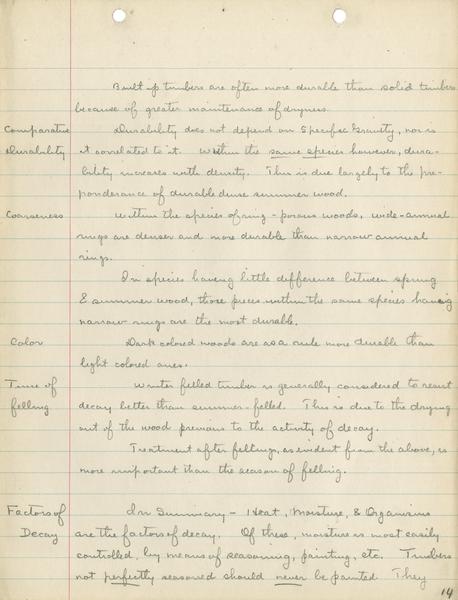 Built up timbers are often more durable than solid timbers
because of greater maintenance of dryness.
Comparative Durability does not depend on Specific Gravity, nor is
Durability it correlated to it. Within the same species however, dura-
bility increases with density. This is due largely to the pre-
ponderance of durable dense summer wood.
Coarseness Within the species of ring-porous woods, wide-annual
rings are denser and more durable than narrow annual
rings.
In species having little difference between spring
& summer wood, those pieces within the same species having
narrow rings are the most durable.
Color Dark colored woods are as a rule more durable than
light colored ones.
Time of Winter felled timber is generally considered to resist
felling decay better than summer-felled. This is due to the drying
out of the wood previous to the activity of decay.
Treatment after felling, as evident from the above, is
more important than the season of felling.
Factors of In Summary - Heat, Moisture, & Organisms
Decay are the factors of decay. Of these, moisture is most easily
controlled, by means of seasoning, painting, etc. Timbers
not perfectly seasoned should never be painted. They
14